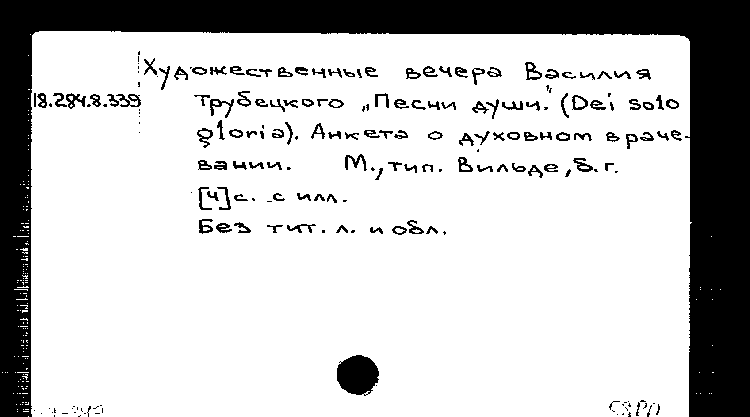 Художественные вечера Василия
18.284.8.339 Трубецкого „Песни души." (Dei solo
gloria). Анкета о духовном враче-
вании. М., тип. Вильде, б. г.
[4] с. с илл.
Без тит. л. и обл.